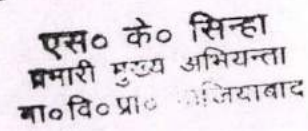 एस० के० सिन्हा
प्रभारी मुख्य अभियन्ता
गा०वि०प्रा०